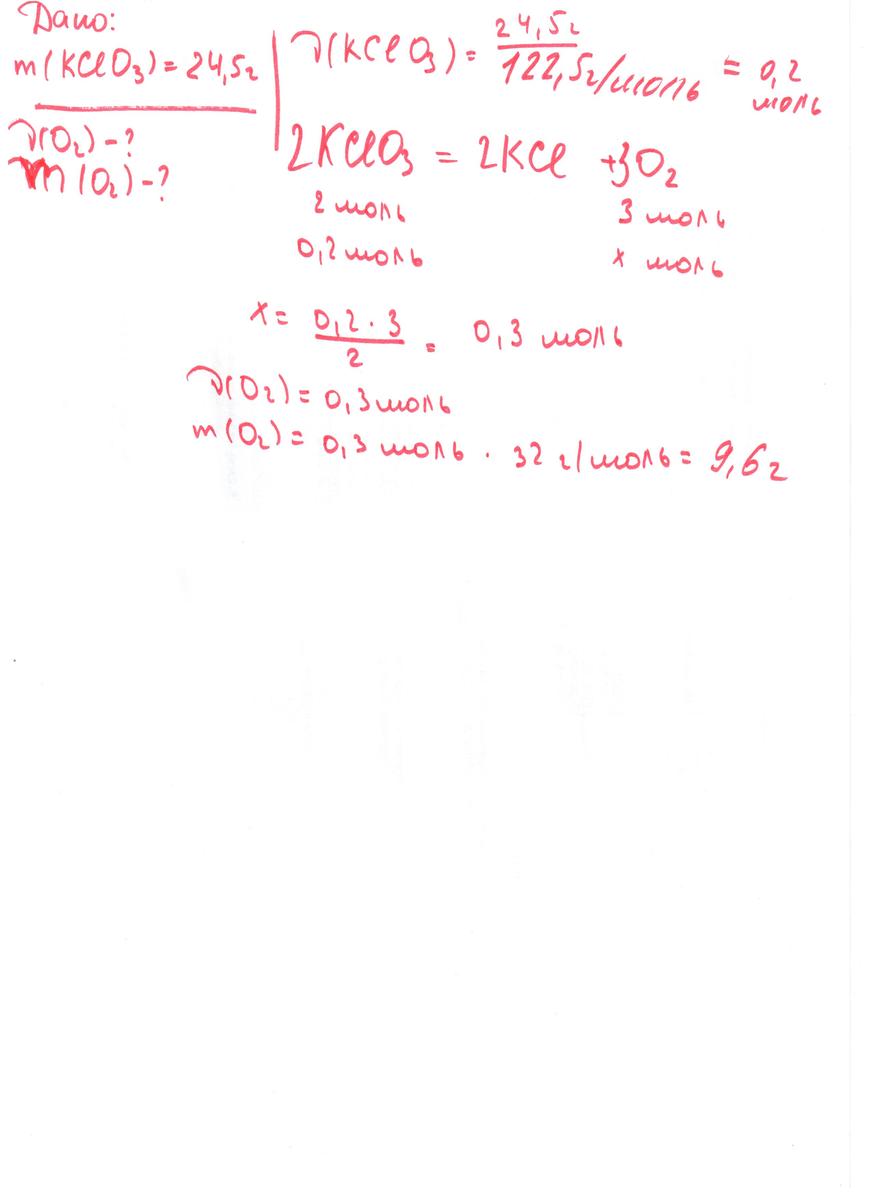 Дано:
m(KClO₃) = 24,5г
ν(O₂) - ?
m(O₂) - ?
ν(KClO₃) = 24,5г / 122,5г/моль = 0,2 моль
2KClO₃ = 2KCl + 3O₂
2 моль 3 моль
0,2 моль x моль
x = 0,2 · 3 / 2 = 0,3 моль
ν(O₂) = 0,3 моль
m(O₂) = 0,3 моль · 32 г/моль = 9,6г